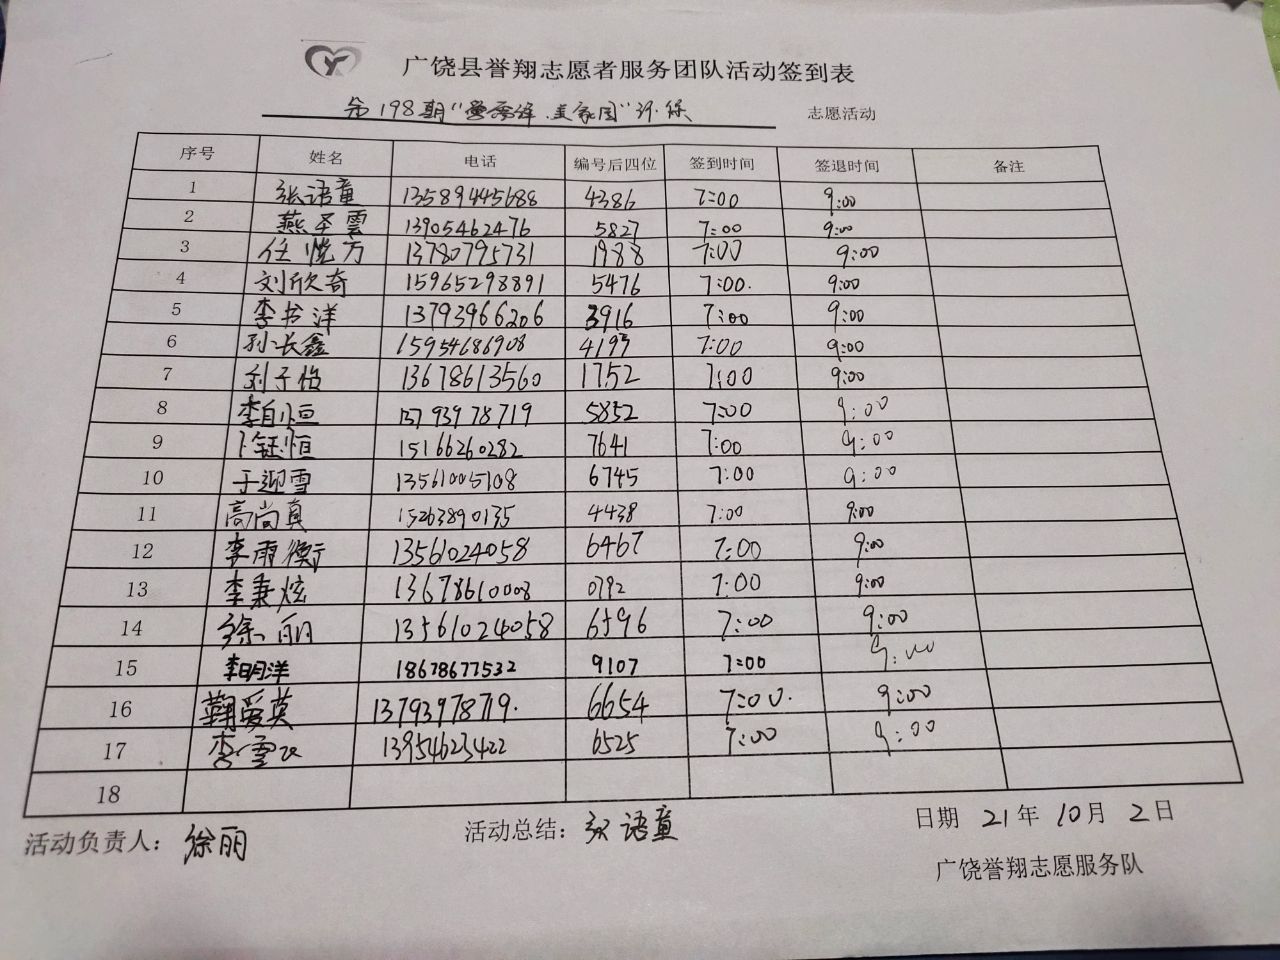 广饶县誉翔志愿者服务团队活动签到表
第198期“爱 美家园”环保 志愿活动
序号 姓名 电话 编号后四位 签到时间 签退时间 备注
1 张语童 13589445688 4386 7:00 9:00
2 燕圣雲 13905462476 5827 7:00 9:00
3 任悦方 13780795731 1988 7:00 9:00
4 刘欣奇 15965298891 5476 7:00. 9:00
5 李书洋 13793966206 3916 7:00 9:00
6 孙长鑫 15954686908 7:00 9:00
7 刘子怡 13678613560 1752 7:00 9:00
8 李自恒 13793978719 5852 7:00 9:00
9 卜钰恒 15166260282 7641 7:00 9:00
10 于迎雪 13561005108 6745 7:00 9:00
11 高尚真 15263890135 4438 7:00 9:00
12 李雨衡 13561024058 6467 7:00 9:00
13 李秉炫 13678610008 0792 7:00 9:00
14 徐丽 13561024058 6596 7:00 9:00
15 李明洋 18678677532 9107 7:00 9:00
16 鞠爱英 13793978719. 6654 7:00. 9:00
17 李雪 13954623422 6525 7:00 9:00
18
活动负责人：徐丽 活动总结：张语童 日期 21年10月2日
广饶誉翔志愿服务队